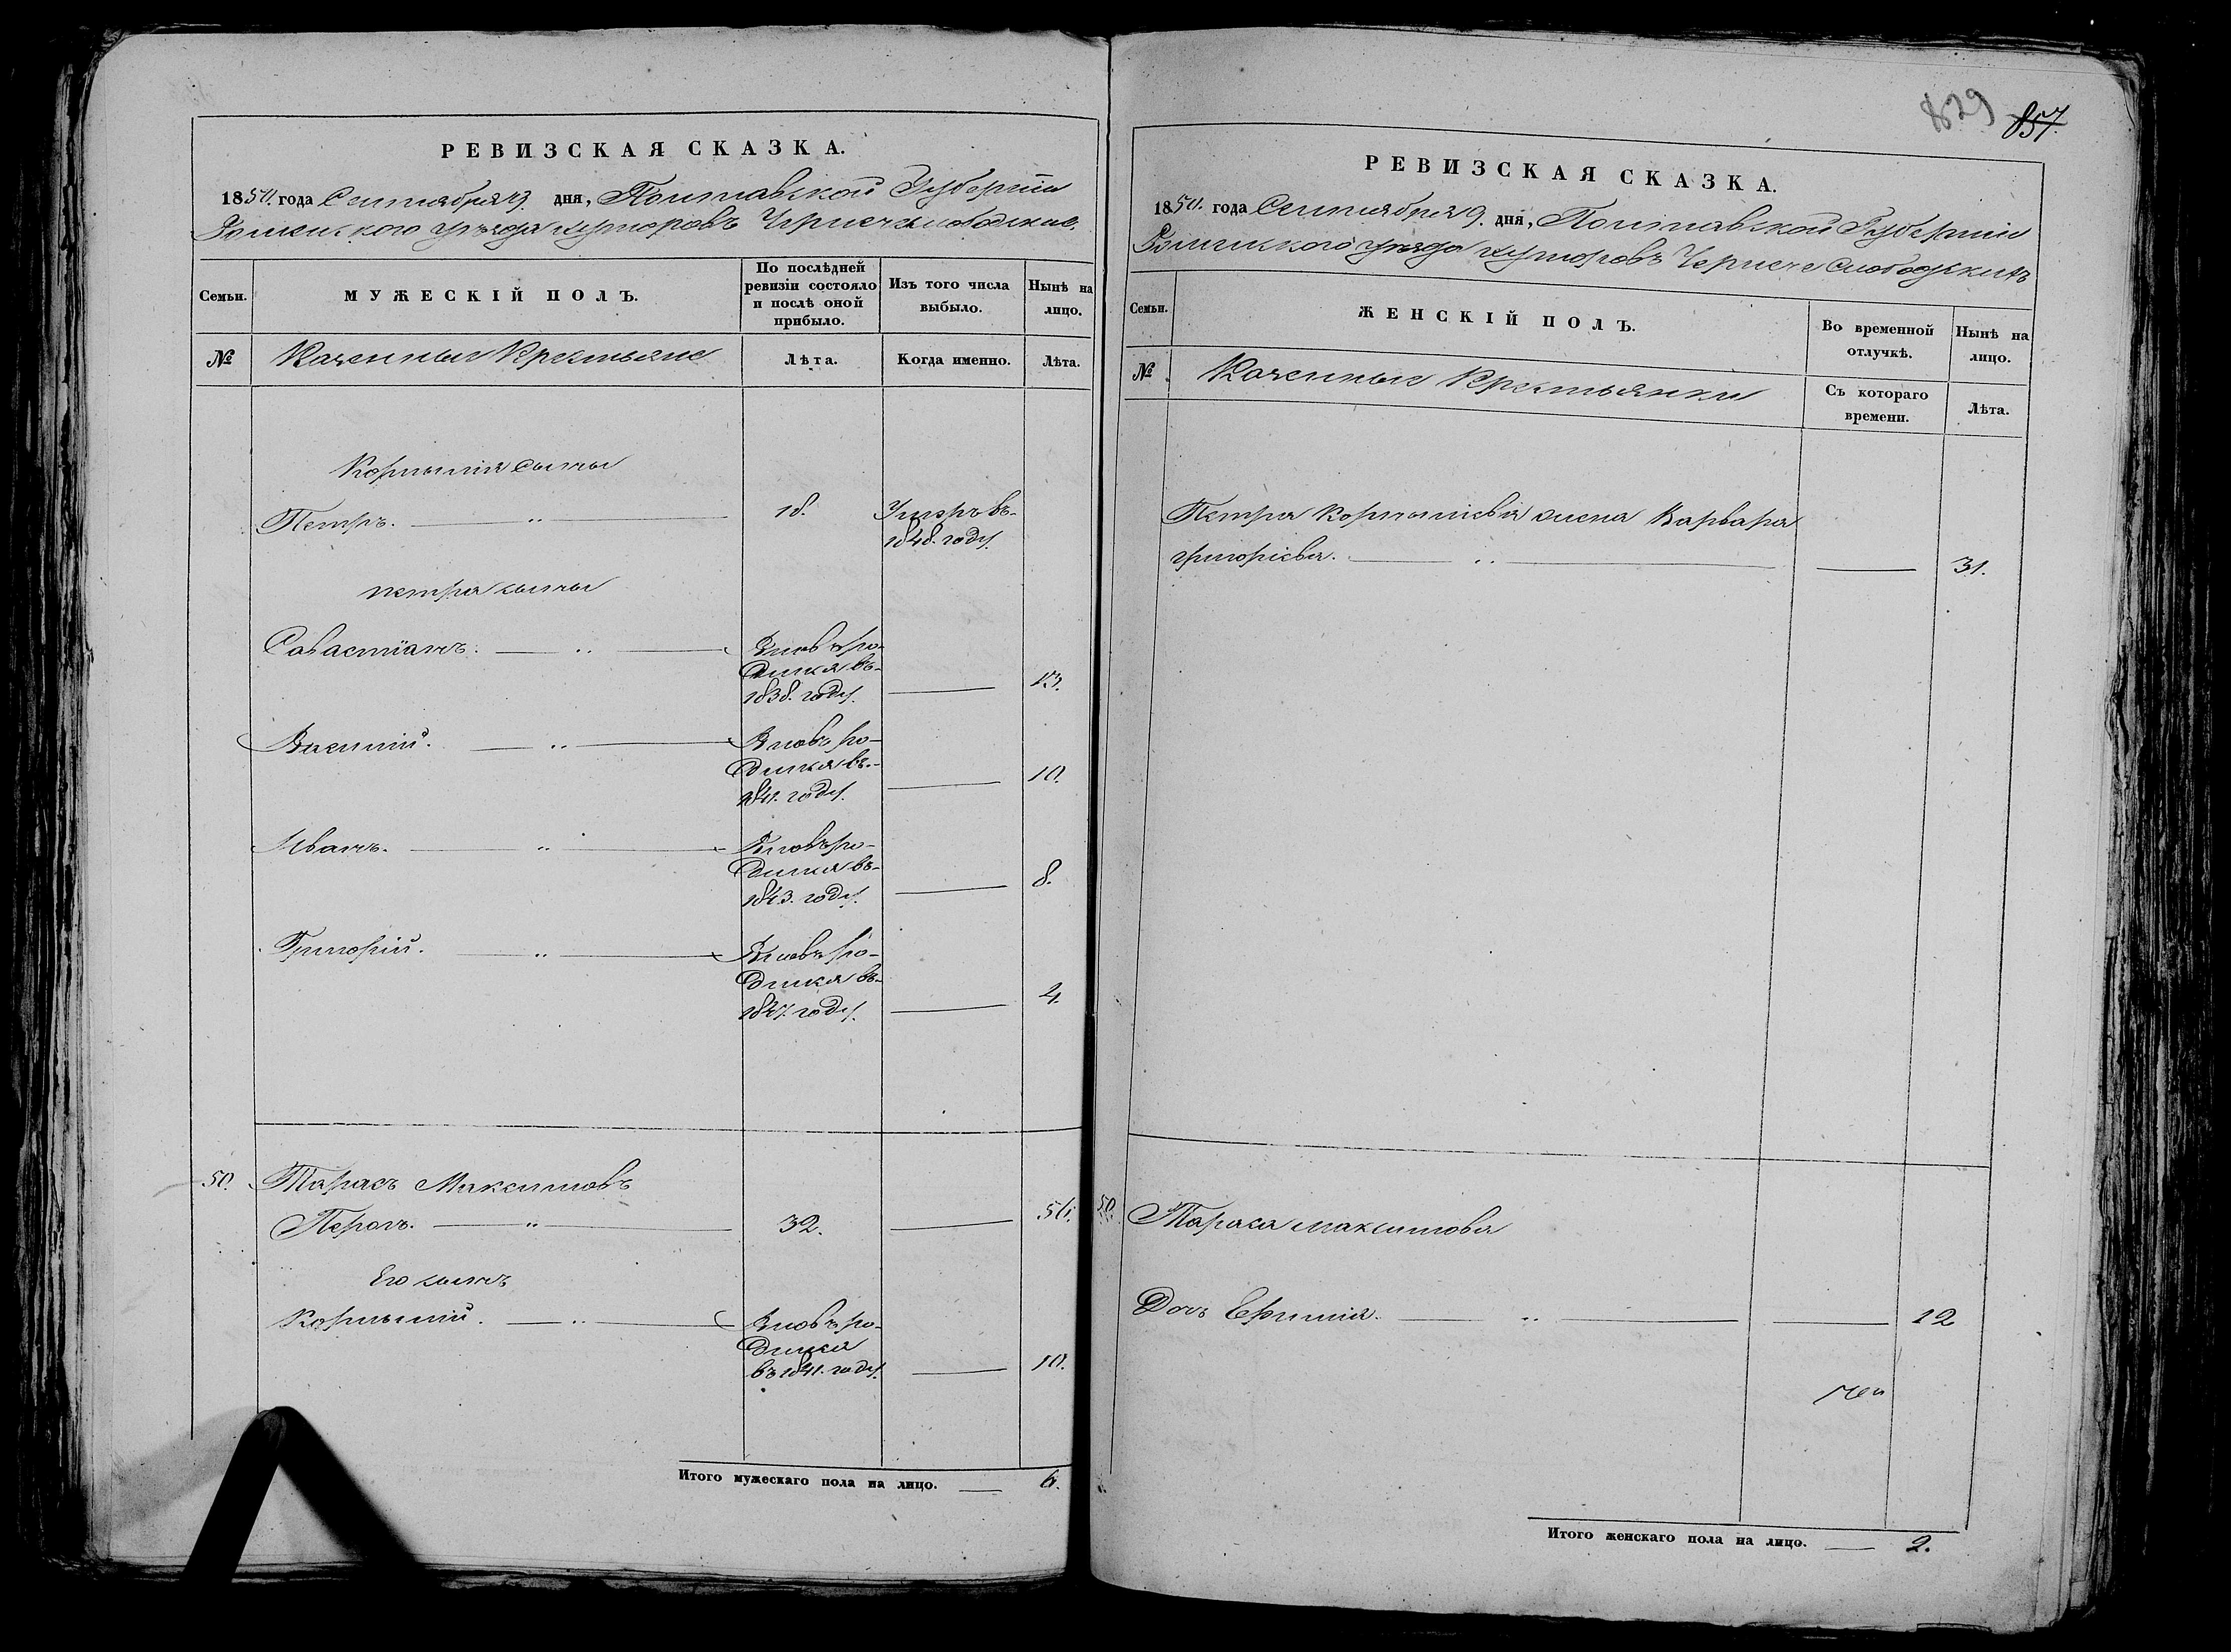 РЕВИЗСКАЯ СКАЗКА.
1850. года Сентября 9. дня, Полтавской Губернии
Роменского уезда хуторовъ Чернечеслободских.
Семьи.
МУЖЕСКІЙ ПОЛЪ.
По послѣдней ревизіи состояло и послѣ оной прибыло.
Изъ того числа выбыло.
Нынѣ на лицо.
№
Казенные Крестьяне
Лѣта.
Когда именно.
Лѣта.
Корнылія сыны
Петръ. 18. Умеръ въ
1848. году.
петра сыны
Савастіанъ. Вновь ро-
дился въ
1838. году. 13.
Василій. Вновь ро-
дился въ
1841. году. 10.
Иванъ. Вновь ро-
дился въ
1843. году. 8.
Григорій. Вновь ро-
дился въ
1847. году. 4.
50. Тарасъ Максимовъ
32.
Его сынъ
Корнылій. Вновь ро-
дился
въ 1841. году. 10.
Итого мужескаго пола на лицо. 6.
829 857.
РЕВИЗСКАЯ СКАЗКА.
1850. года Сентября 9. дня, Полтавской Губернии
Роменского уезда хуторовъ Чернече Слободскихъ
Семьи.
ЖЕНСКІЙ ПОЛЪ.
Во временной отлучкѣ.
Нынѣ на лицо.
№
Казенные Крестьянки
Съ котораго времени.
Лѣта.
Петра Корнылиева жена Варвара
григоріева. 31.
50. Тараса максимова
Дочь Ефимія. 12
Итого женскаго пола на лицо. 2.